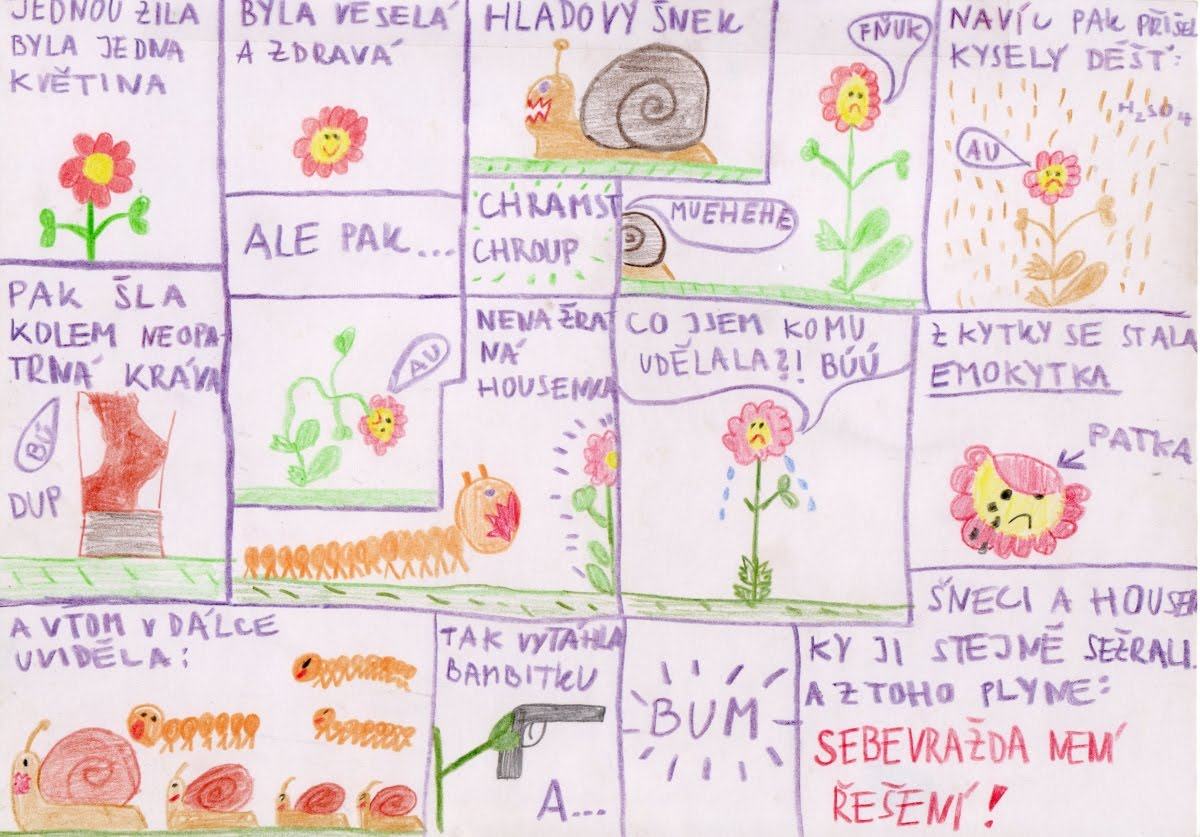 JEDNOU ŽILA
BYLA JEDNA
KVĚTINA
BYLA VESELÁ
A ZDRAVÁ
ALE PAK...
HLADOVÝ ŠNEK
CHRAMST
CHROUP
MUEHEHE
FŇUK
NAVÍC PAK PŘIŠEL
KYSELÝ DÉŠŤ:
H₂SO₄
AU
PAK ŠLA
KOLEM NEOPA-
TRNÁ KRÁVA
BÚ
DUP
AU
NENAŽRA
NÁ
HOUSENKA
CO JSEM KOMU
UDĚLALA?! BÚÚ
Z KYTKY SE STALA
EMOKYTKA
PATKA
A VTOM V DÁLCE
UVIDĚLA:
TAK VYTÁHLA
BAMBITKU
A...
BUM
ŠNECI A HOUSEN
KY JI STEJNĚ SEŽRALI
A Z TOHO PLYNE:
SEBEVRAŽDA NENÍ
ŘEŠENÍ!